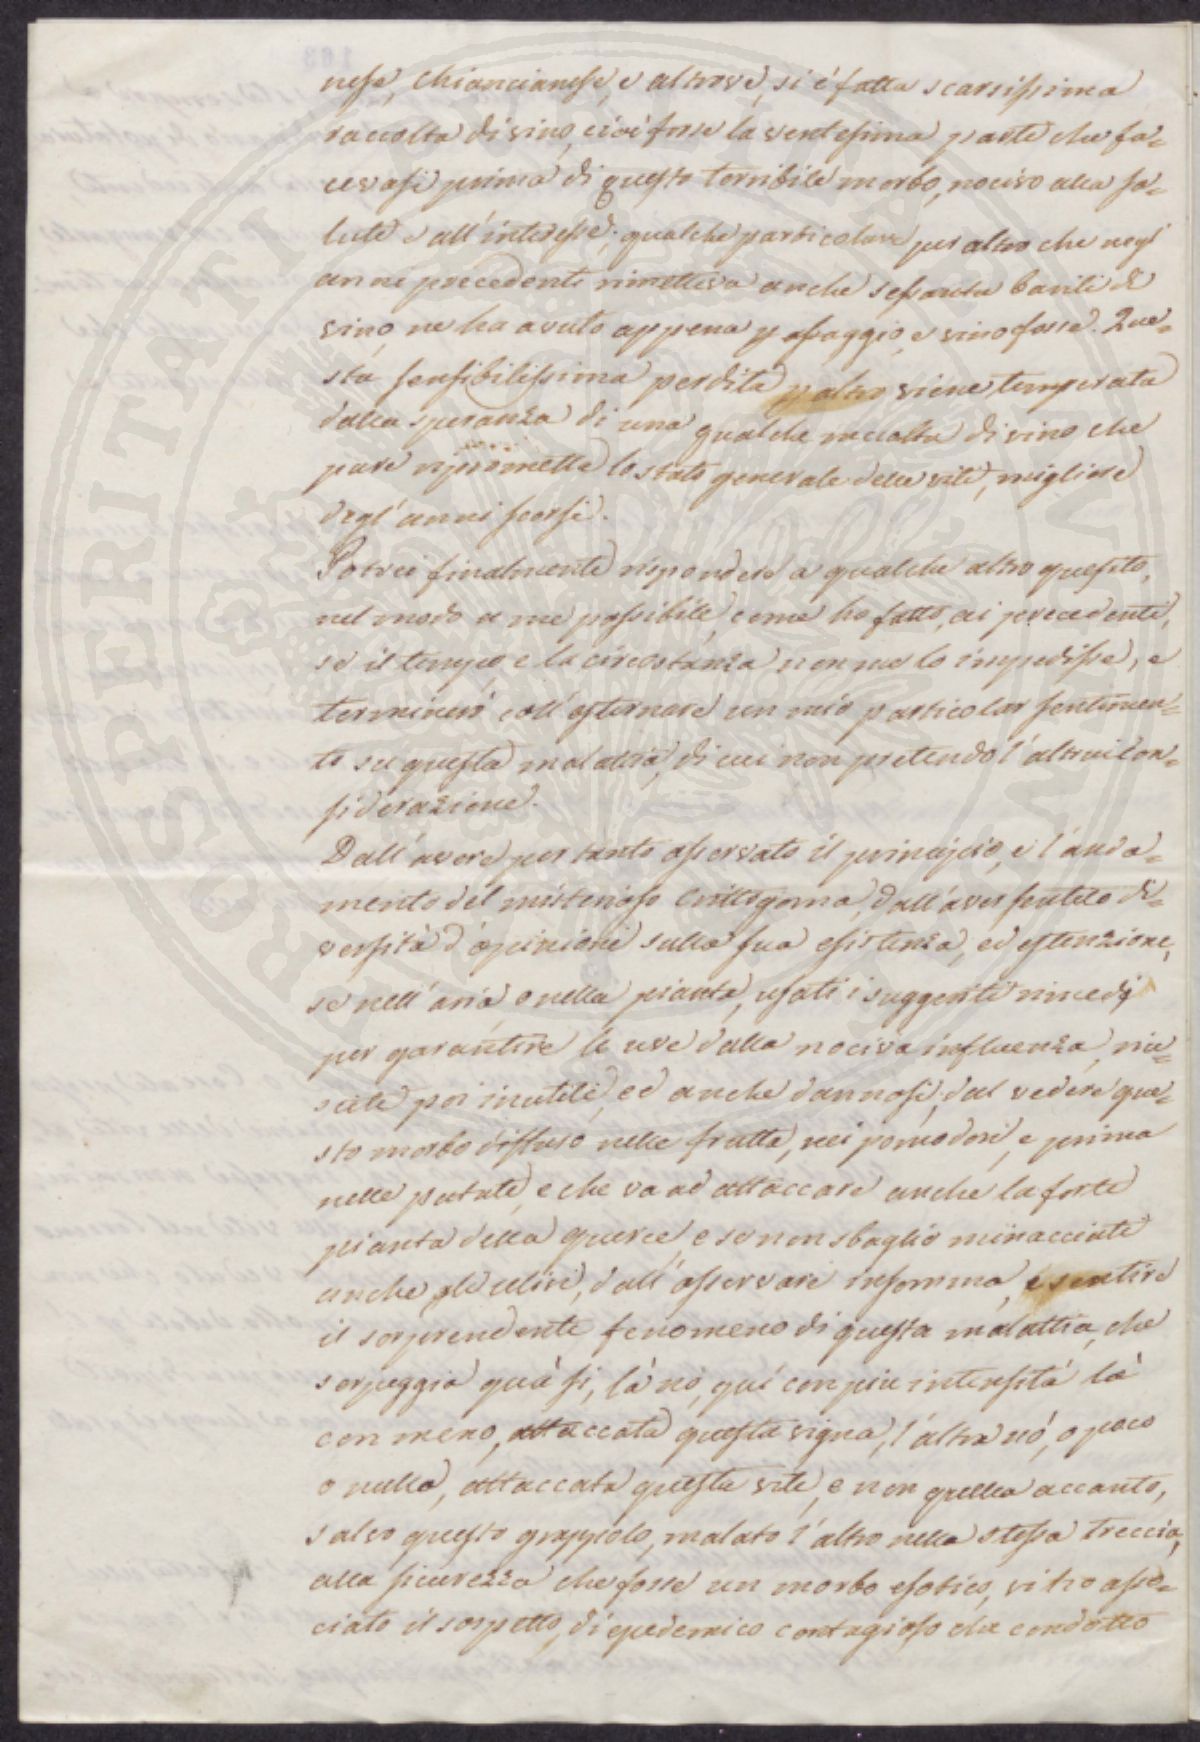 nese, Chiancianese, e altrove, si è fatta scarsissima
raccolta di vino, cioè forse la ventesima parte che fa=
cevasi prima di questo terribile morbo, nocivo alla sa=
lute e all'interesse; qualche particolare per altro che negl'
anni precedenti rimetteva anche sessanta barili di
vino, ne ha avuto appena p assaggio, e vino fosse. Que=
sta sensibilissima perdita p altro viene temperata
dalla speranza di una qualche raccolta di vino che
pure ripromette lo stato generale delle vite, migliore
degl'anni scorsi.
Potrei finalmente rispondere a qualche altro quesito,
nel modo a me possibile, come ho fatto, ai precedenti,
se il tempo, e la circostanza non me lo impedisse, e
terminerò coll'esternare un mio particolar sentimen=
to su questa malattia, di cui non pretendo l'altrui con=
siderazione.
Dall'avere per tanto osservato il principio, e l'anda=
mento del misterioso Crittogama, dall'aver sentito di=
versità d'opinioni sulla sua esistenza, ed estenzione,
se nell'aria o nella pianta, usati i suggeriti rimedj
per garantire le uve dalla nociva influenza, riu=
sciti poi inutili, ed anche dannosi; dal vedere que=
sto morbo diffuso nelle frutta, nei pomodori, e prima
nelle patate, e che va ad attaccare anche la forte
pianta della querce, e se non sbaglio minacciati
anche gli ulivi, dall'osservare insomma, e sentire
il sorprendente fenomeno di questa malattia, che
serpeggia quà si, là nò, quì con più intensità là
con meno, attaccata questa vigna, l'altra nò, o poco
o nulla, attaccata questa vite, e non quella accanto,
salvo questo grappolo, malato l'altro nella stessa treccia,
alla sicurezza che fosse un morbo esotico, vi ho asso=
ciato il sospetto, di epidemico contagioso che condotto